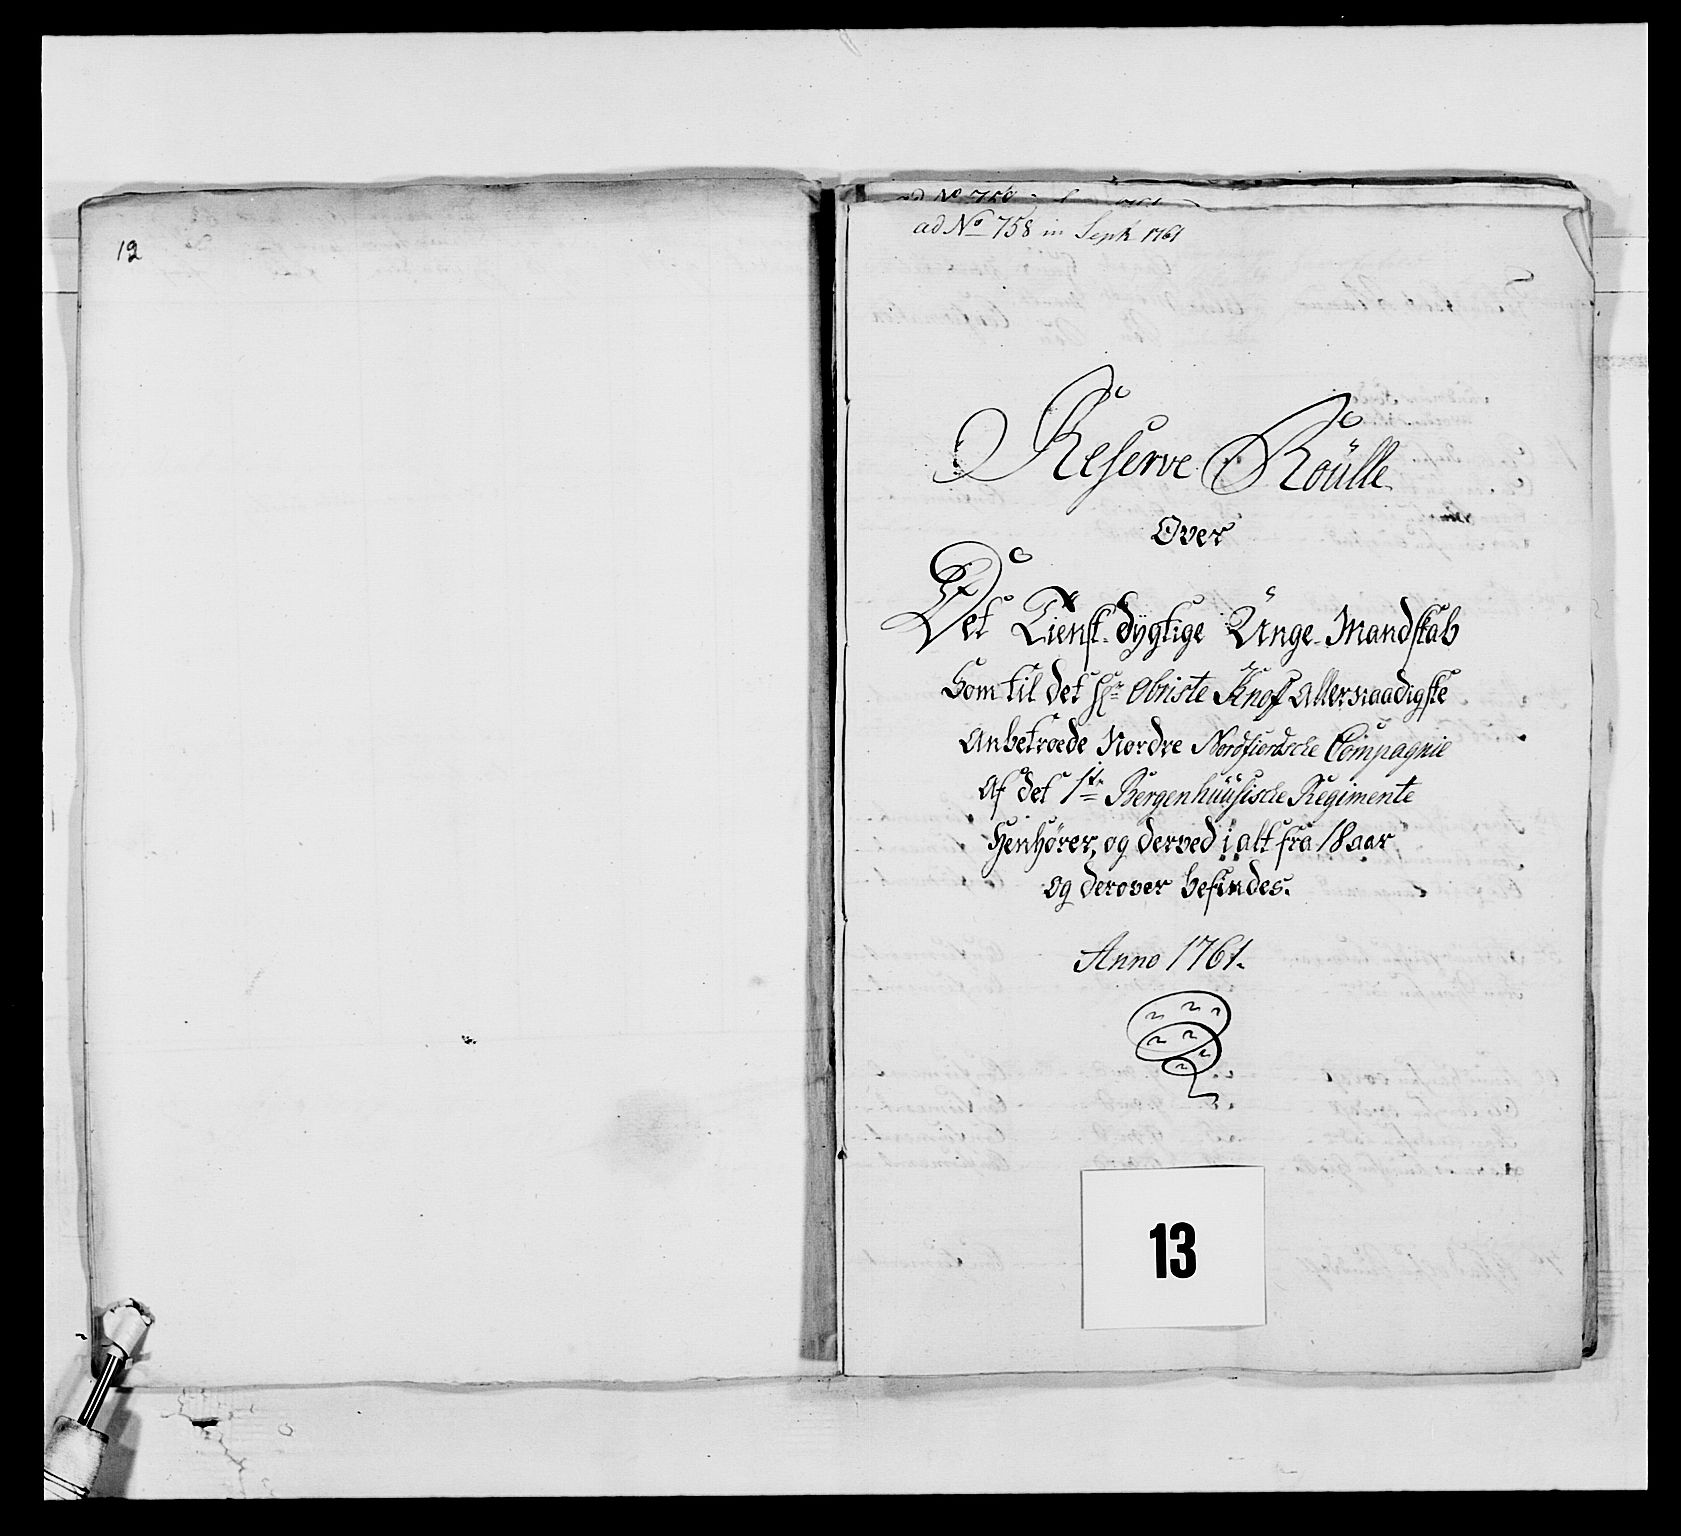 12
ad No 758 in Sept 1761
Reserve Roülle
Over
Det Tienst-dygtige Unge-Mandskab
Som til det Hr Obriste Knof allernaadigste
Anbetroede Nordre Nordfiordsche Compagnie
Af det 1te Bergenhuusische Regimente
Henhører, og derved i alt fra 18 aar
og derover befindes.
Anno 1761.
13